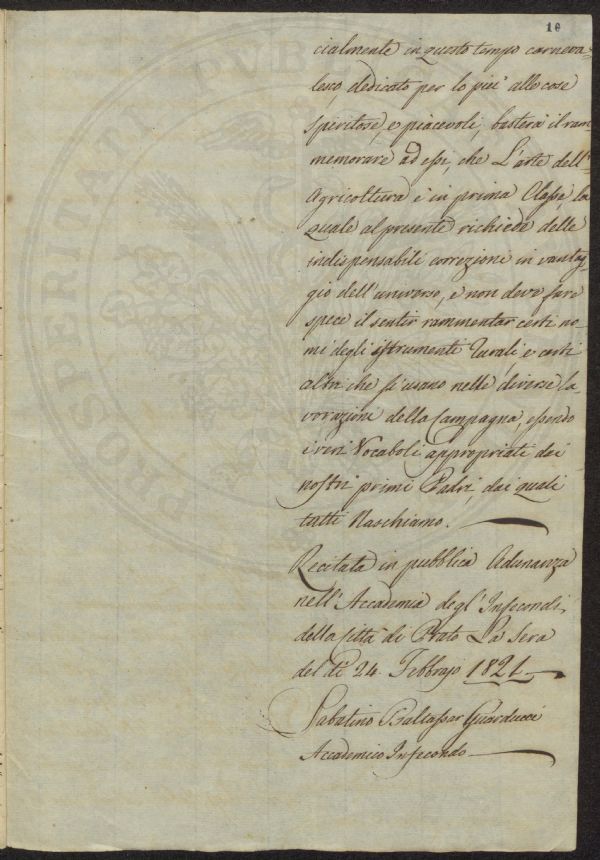 16
cialmente in questo tempo carneva-
lesco, dedicato per lo più alle cose
spiritose, e piacevoli, basterà il ram
memorare ad essi, che L'arte dell'
Agricoltura è in prima Classe, la
quale al presente richiede delle
indispensabili correzioni in vantag
gio dell'universo, e non deve fare
spece il sentir rammentar certi no-
mi degli istrumenti Rurali, e certi
altri che si usano nelle diverse la-
vorazioni della Campagna, essendo
i veri Vocaboli appropriati dai
nostri primi Padri, dai quali
tutti Naschiamo.
Recitata in pubblica Adunanza
nell'Accademia degl'Infecondi,
della Città di Prato La sera
del dì 24. Febbrajo 1821
Sabatino Baltassar Guarducci
Accademico Infecondo
PROSPERITATI PVB